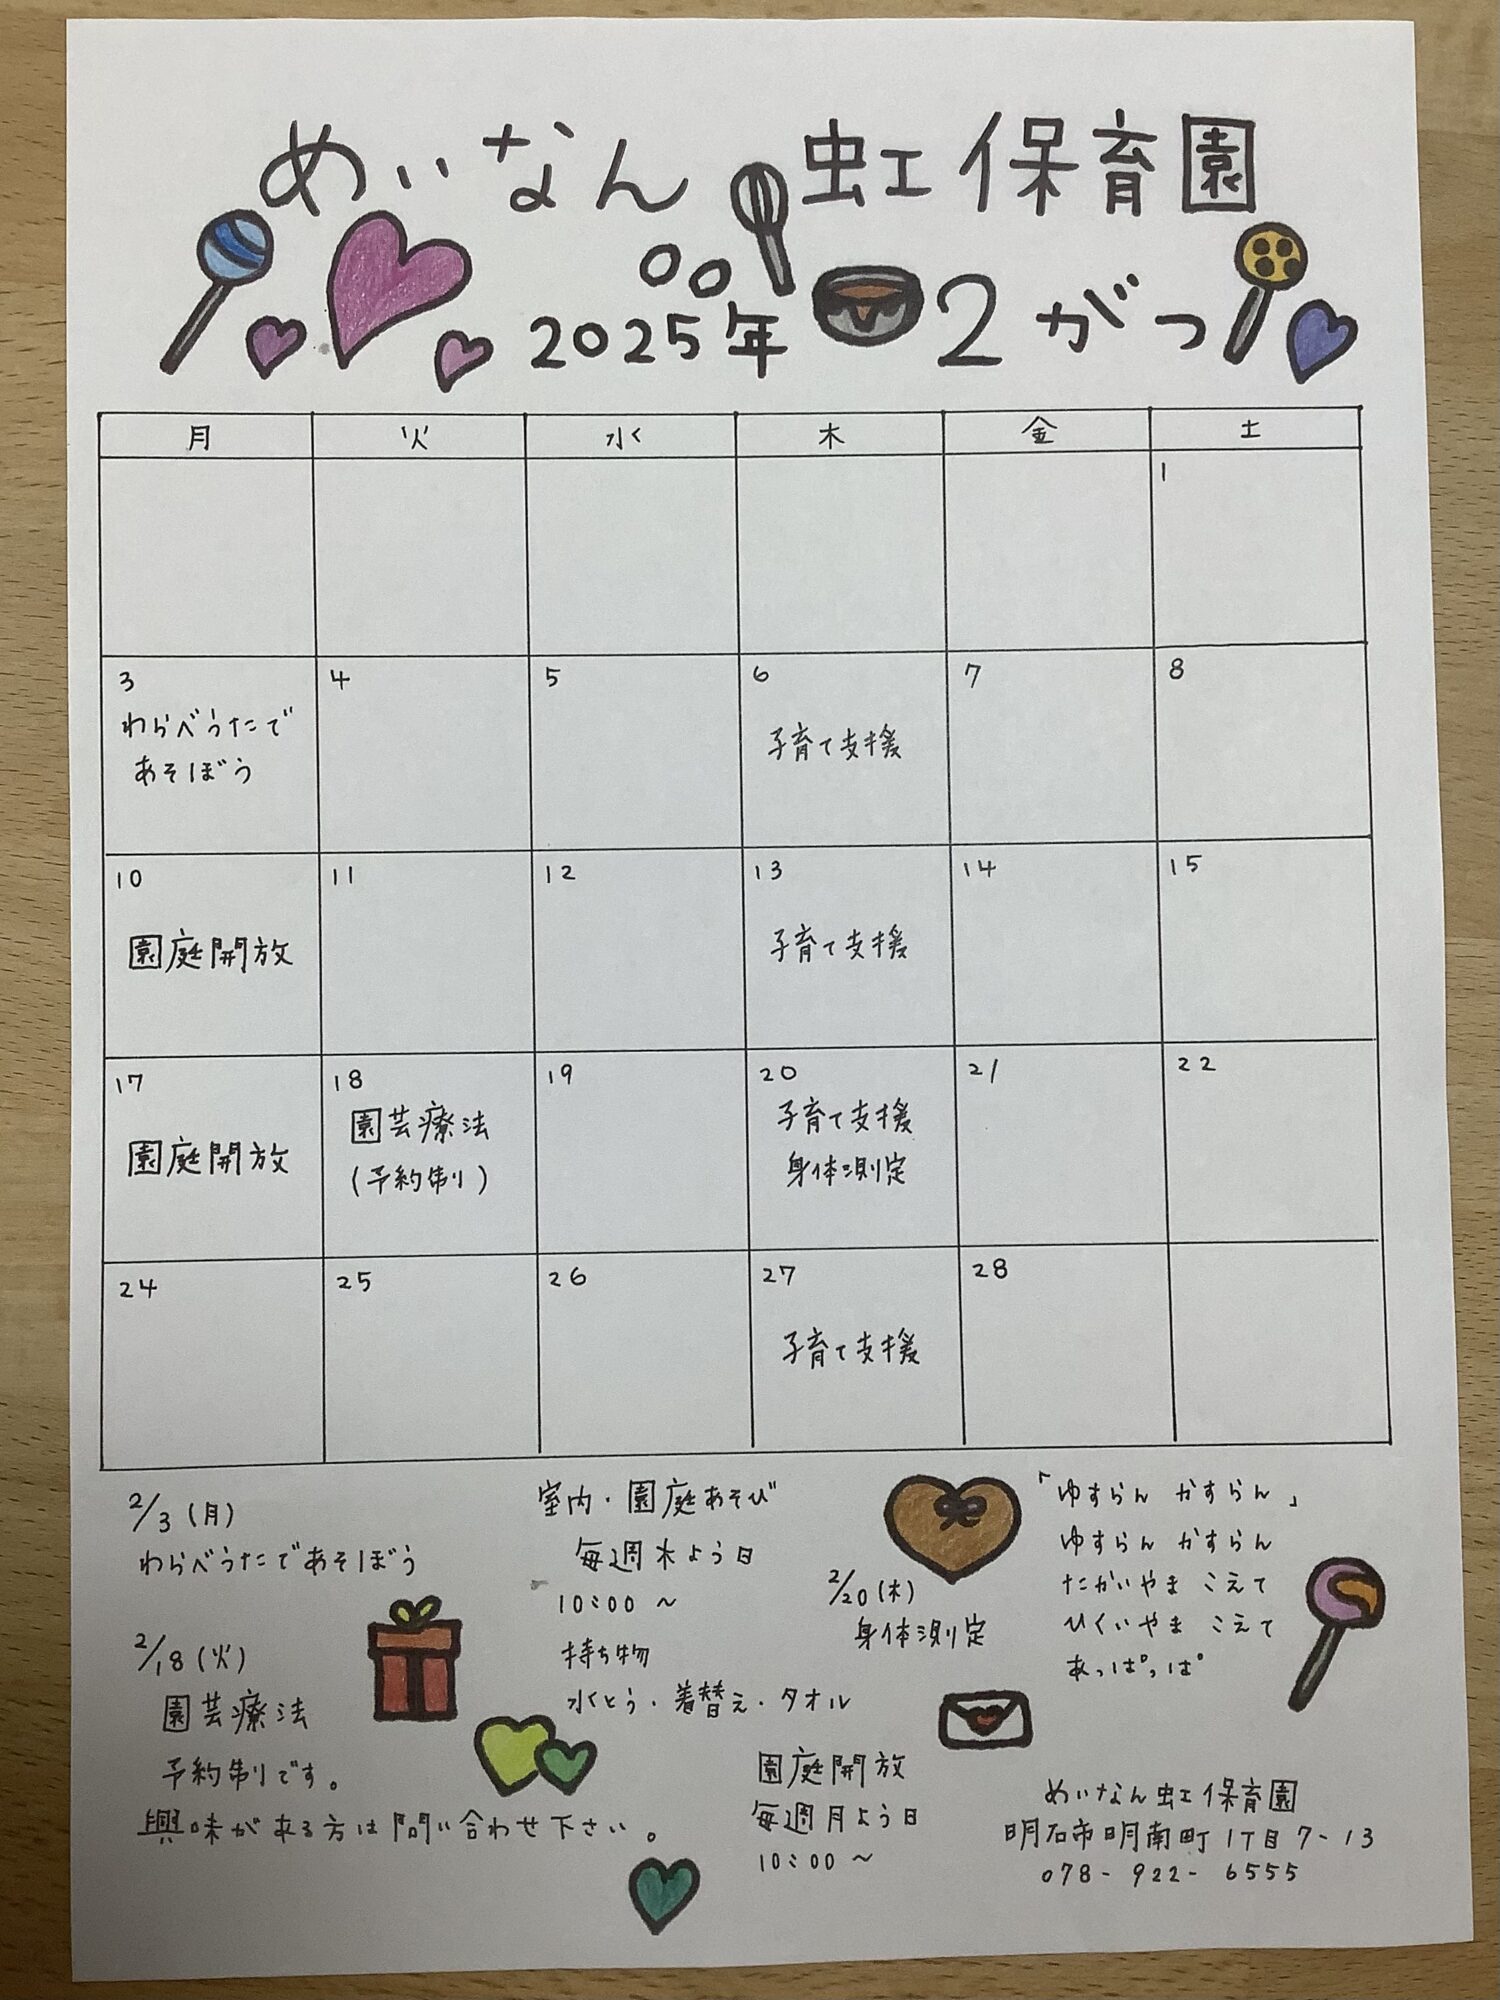 めいなん 虹保育園
2025年 2がつ
月 火 水 木 金 土
1
3 4 5 6 7 8
わらべうたで
あそぼう
子育て支援
10 11 12 13 14 15
園庭開放
子育て支援
17 18 19 20 21 22
園庭開放
園芸療法
(予約制)
子育て支援
身体測定
24 25 26 27 28
子育て支援
2/3(月)
わらべうたであそぼう
2/18(火)
園芸療法
予約制です。
興味が来る方は問い合わせ下さい。
室内・園庭あそび
毎週木よう日
10:00~
持ち物
水とう・着替え・タオル
2/20(木)
身体測定
園庭開放
毎週月よう日
10:00~
「ゆすらん かすらん」
ゆすらん かすらん
たかいやま こえて
ひくいやま こえて
あっぱっぱ
めいなん虹保育園
明石市明南町1丁目7-13
078-922-6555